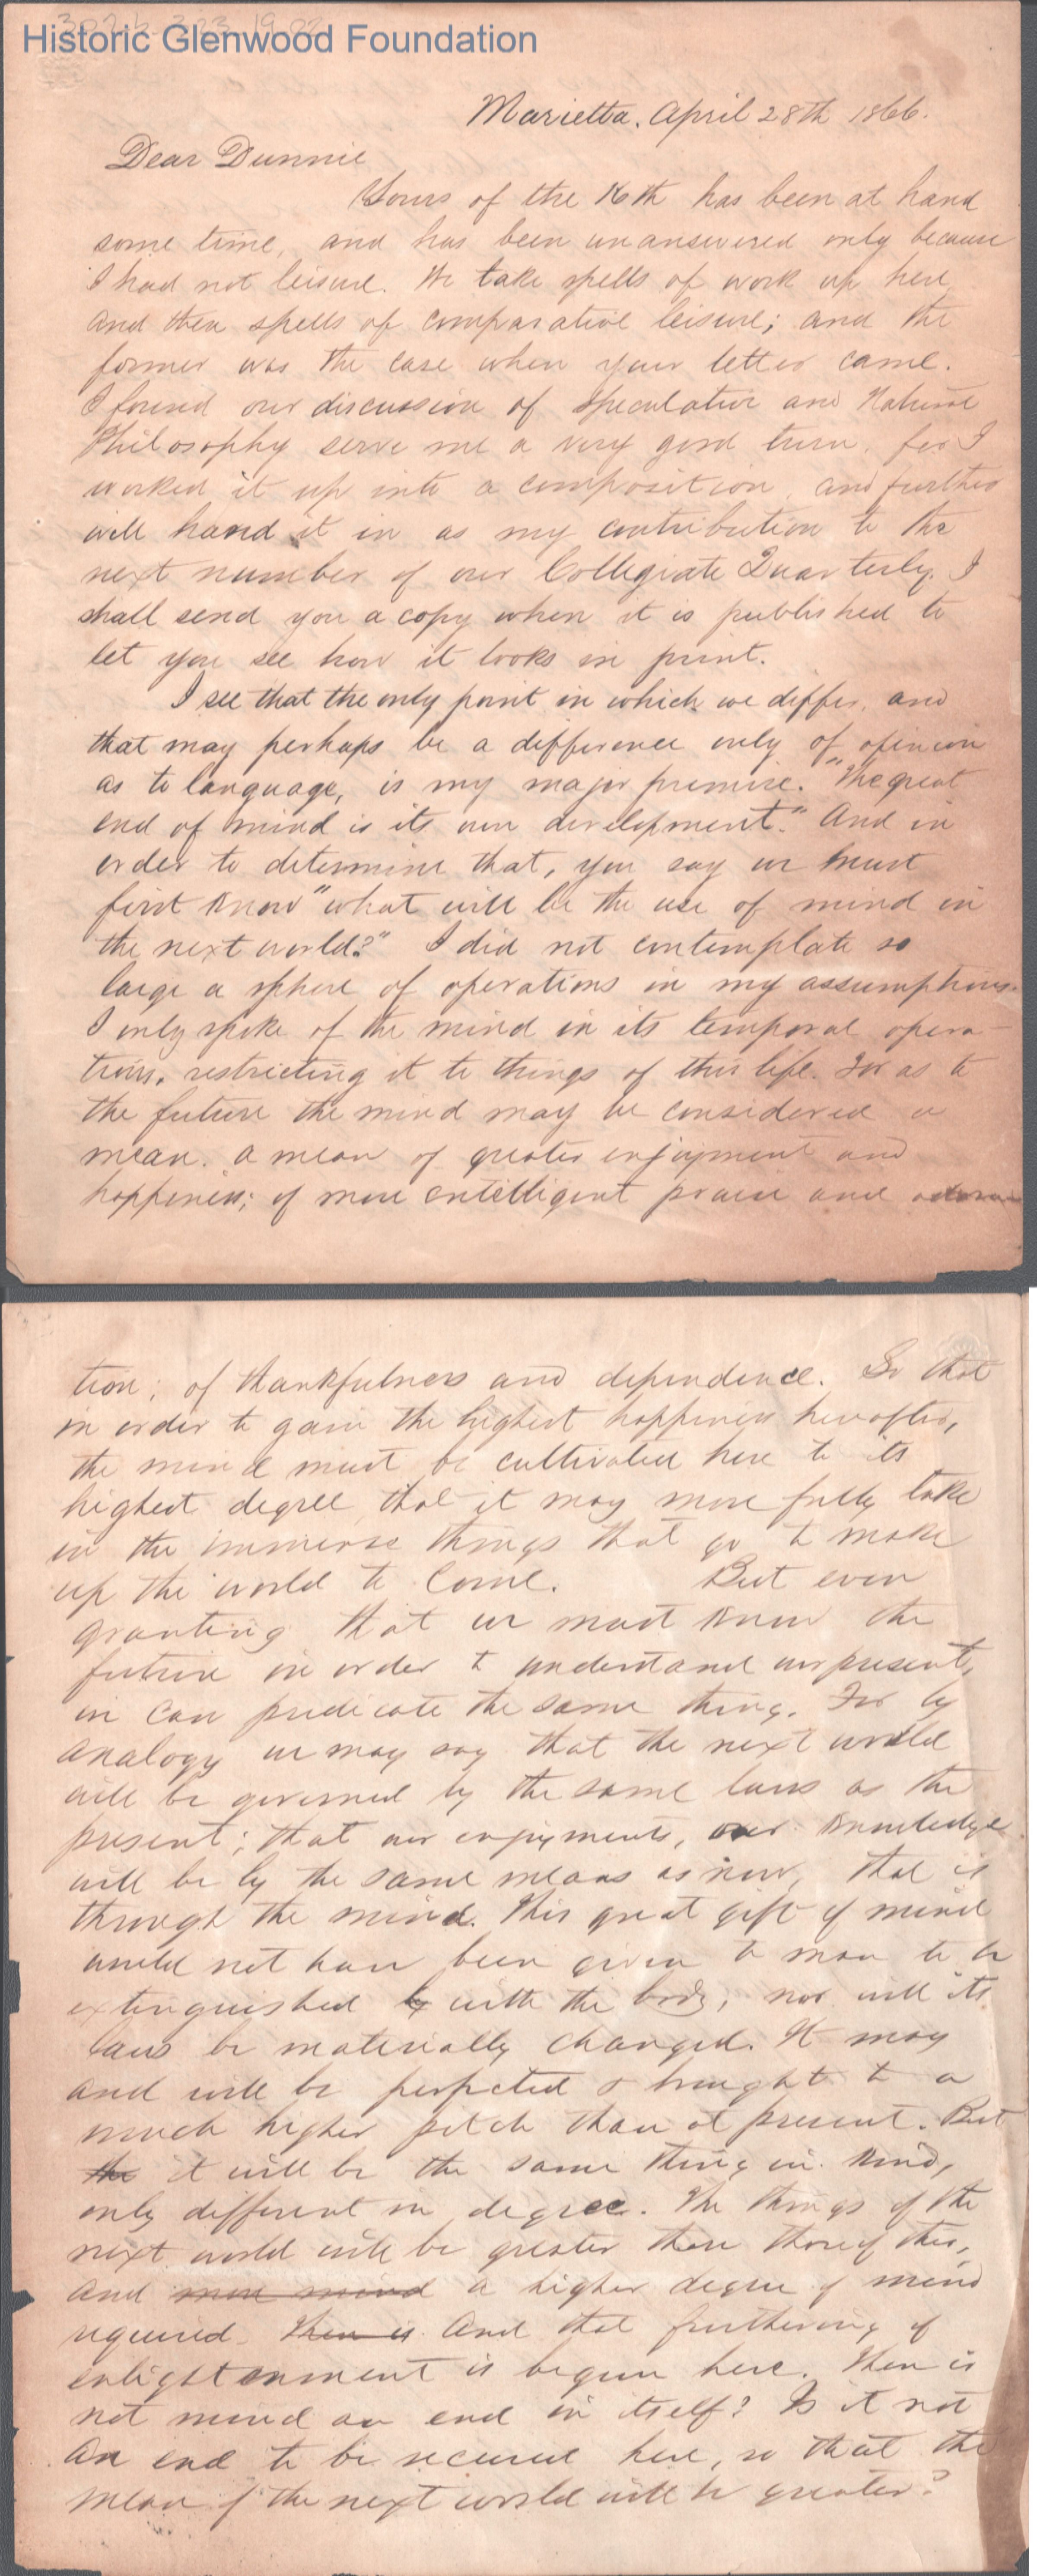 302.b.323.19.02
Historic Glenwood Foundation
Marietta. April 28th 1866.
Dear Dunnie
Yours of the 16th has been at hand
some time, and has been unanswered only because
I had not leisure. We take spells of work up here
and then spells of comparative leisure; and the
former was the case when your letter came.
I found our discussion of Speculative and Natural
Philosophy serve me a very good turn, for I
worked it up into a composition, and further
will hand it in as my contribution to the
next number of our Collegiate Quarterly. I
shall send you a copy when it is published to
let you see how it looks in print.
I see that the only point in which we differ, and
that may perhaps be a difference only of opinion
as to language, is my major premise. "The great
end of mind is its own development." And in
order to determine that, you say we must
first know "what will be the use of mind in
the next world?" I did not contemplate so
large a sphere of operations in my assumptions.
I only spoke of the mind in its temporal opera-
tions, restricting it to things of this life. For as to
the future the mind may be considered a
mean. a mean of greater enjoyment and
happiness; of more entelligent praise and adora
tion; of thankfulness and dependence. So that
in order to gain the highest happiness hereafter,
the mind must be cultivated here to its
highest degree that it may more fully take
in the immense things that go to make
up the world to come. But even
granting that we must know the
future in order to understand our present,
we can predicate the same thing. For by
analogy we may say that the next world
will be governed by the same laws as the
present; that our enjoyments, our knowledge
will be by the same means as now, that is
through the mind. This great gift of mind
would not have been given to man to be
extinguished with the body, nor will its
laws be materially changed. It may
and will be perfected & brought to a
much higher pitch than at present. But
the it will be the same thing in kind,
only different in degree. The things of the
next world will be greater than those of this,
and more mind a higher degree of mind
required. Then is And that furthering of
enlightenment is begun here. Then is
not mind an end in itself? Is it not
an end to be secured here, so that the
mean of the next world will be greater?